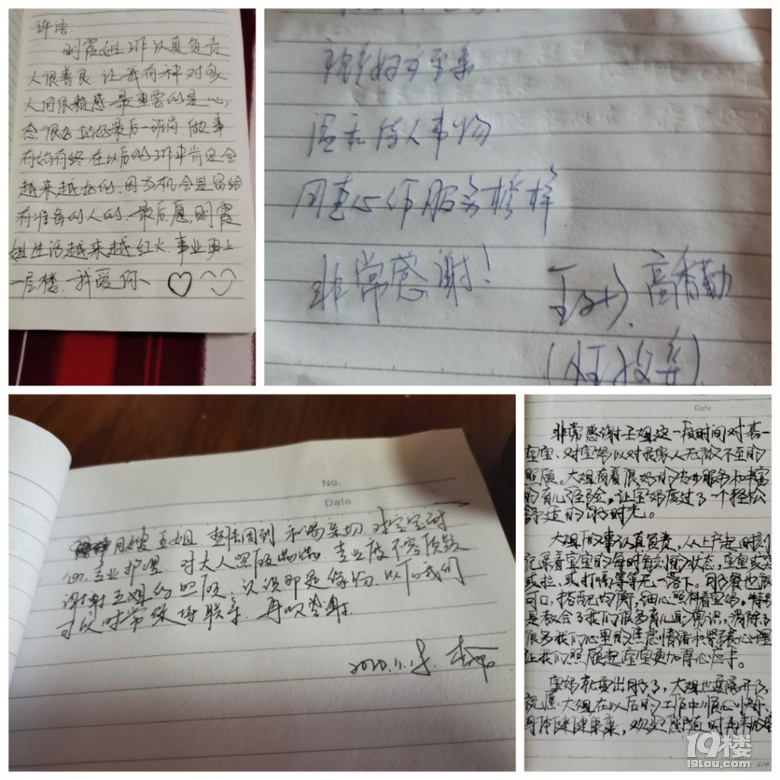 评语
明霞姐工作认真负责
人很善良 让我有种对家
人的依赖感 最重要的是心
态很
有始有终 在以后的工作中肯定会
越来越好的. 因为机会是留给
有准备的人的. 最后愿,明霞
姐生活越来越红火.事业更上
一层楼. 我爱你、
温和待人事物
用真心作服务榜样
非常感谢!
高香勤
No.
Date
月嫂 王姐 热情周到 和蔼亲切 对宝宝耐
心 专业护理 对大人照顾 专业度不容质疑
谢谢王姐的照顾, 认识即是缘份 以后我们
可以时常保持联系. 再次感谢
Date
非常感谢王姐这一段时间对喜一
宝宝、对宝妈以对我家人无微不至的
照顾。大姐有着很好的专业服务和丰富
的育儿经验,让宝妈度过了一个轻松
舒适的月子时光。
大姐做事认真负责,从上户起时刻
记录着宝宝的每时每刻的状态,宝宝或
或拉,或打嗝等等无一落下。月子餐也很
可口,搭配均衡,细心照料着宝妈,特别
是教会了我们很多育儿知识,消除了
很多我们心里的焦虑情绪和紧张心理
在我们照顾起宝宝更加得心应手。
宝妈就要出月了,大姐也要离开了,
祝愿大姐在以后的工作中顺心顺
身体健健康康,
19楼
19lou.com